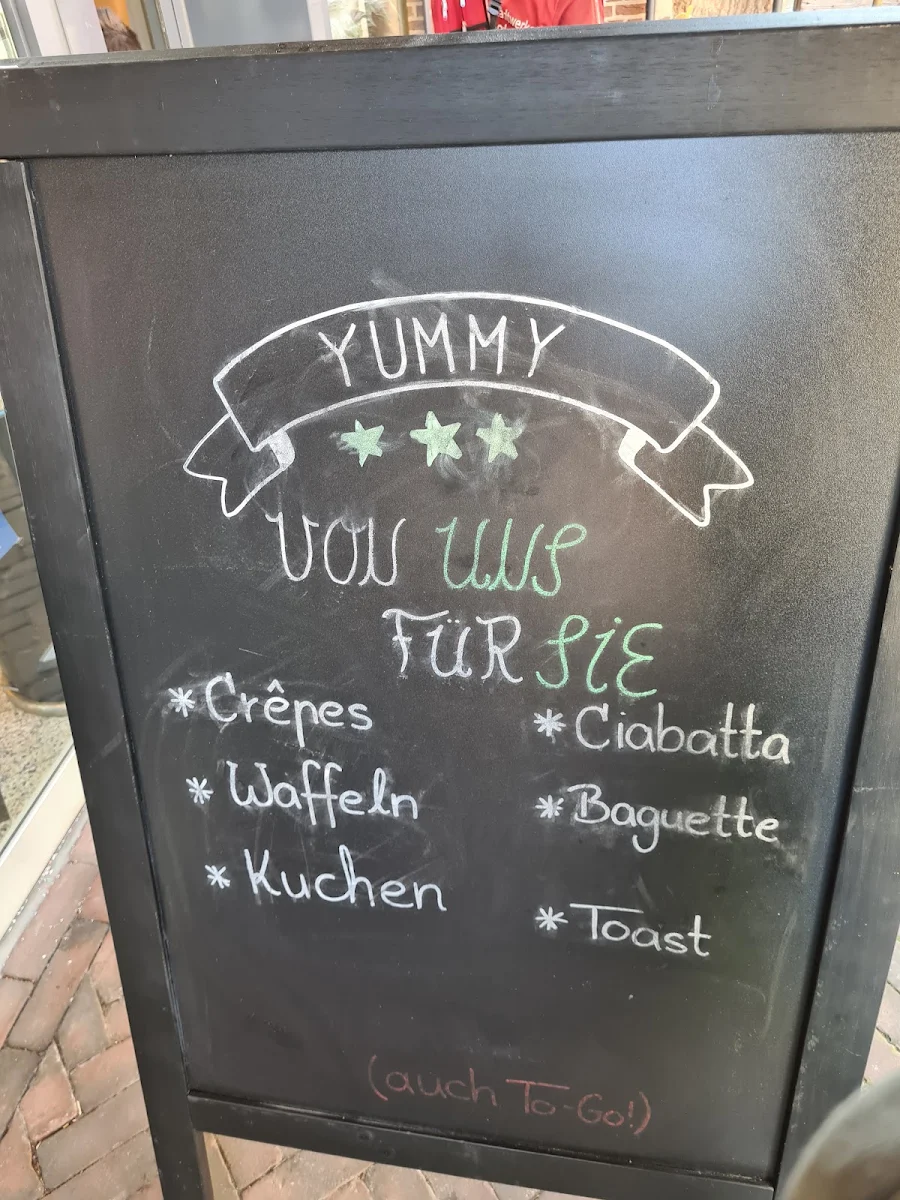 YUMMY
VON UNS
FÜR SIE
* Crêpes
* Waffeln
* Kuchen
* Ciabatta
* Baguette
* Toast
(auch To-Go!)